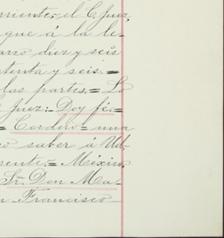 rriente, el C. Juez
que á la le-
arzo diez y seis
tenta y seis.=
las partes.= Lo
Juez: Doy fé=
= Cordero= una
o saber á Ud.
sente.= México
Sr. Don Ma-
n Francisco